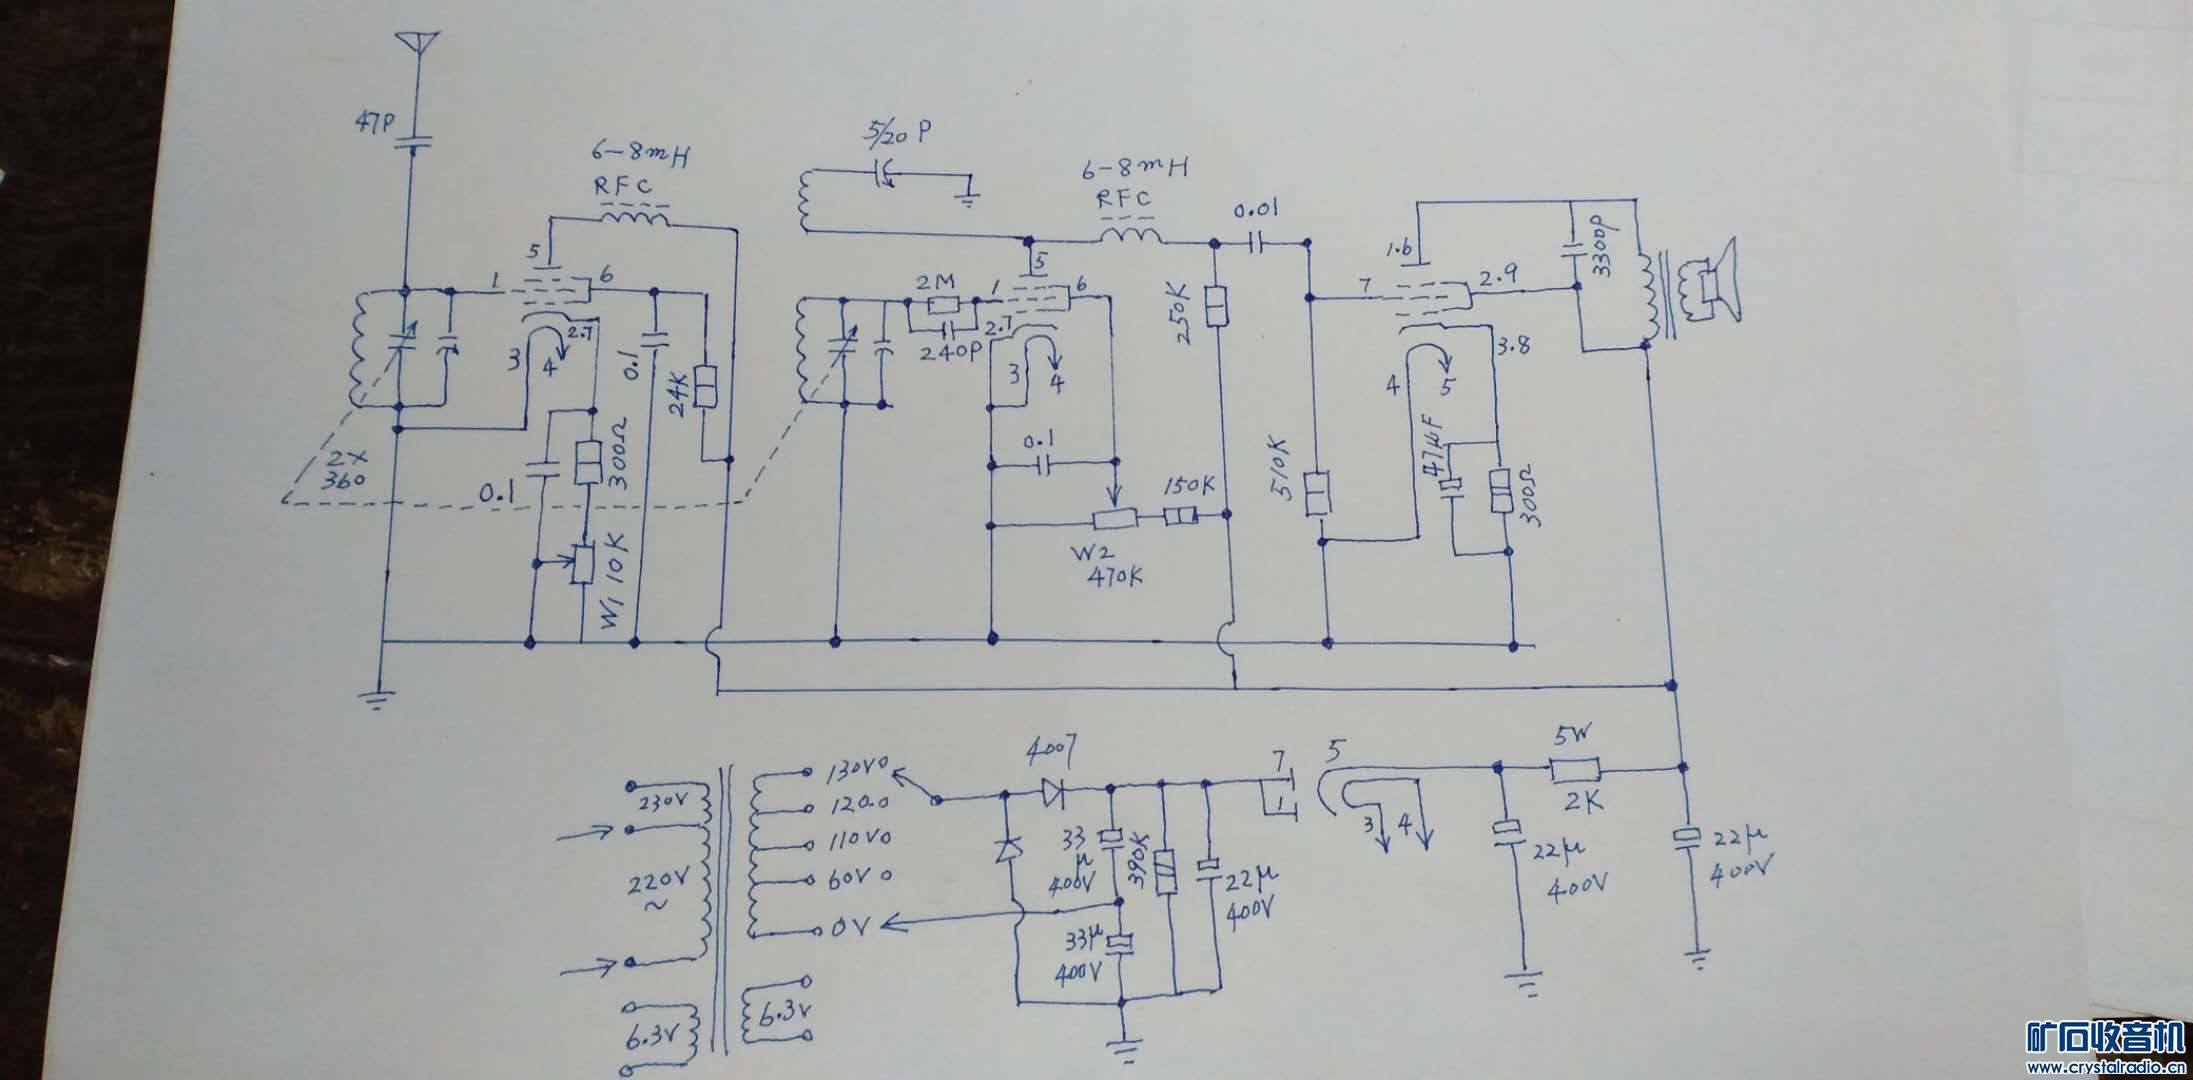 47P
6-8mH
RFC
5
1
6
2.7
3
4
0.1
24K
2X
360
0.1
300Ω
W1 10K
5/20 P
6-8mH
RFC
0.01
5
2M
1
6
2.7
240P
3
4
250K
0.1
150K
W2
470K
1.6
3300P
7
2.9
3.8
4
5
510K
47μF
300Ω
230V
220V
~
6.3V
130V
120
110V
60V
0V
6.3V
4007
33
μ
400V
390K
22μ
400V
33μ
400V
7
5
3
4
5W
2K
22μ
400V
22μ
400V
矿石收音机
www.crystalradio.cn